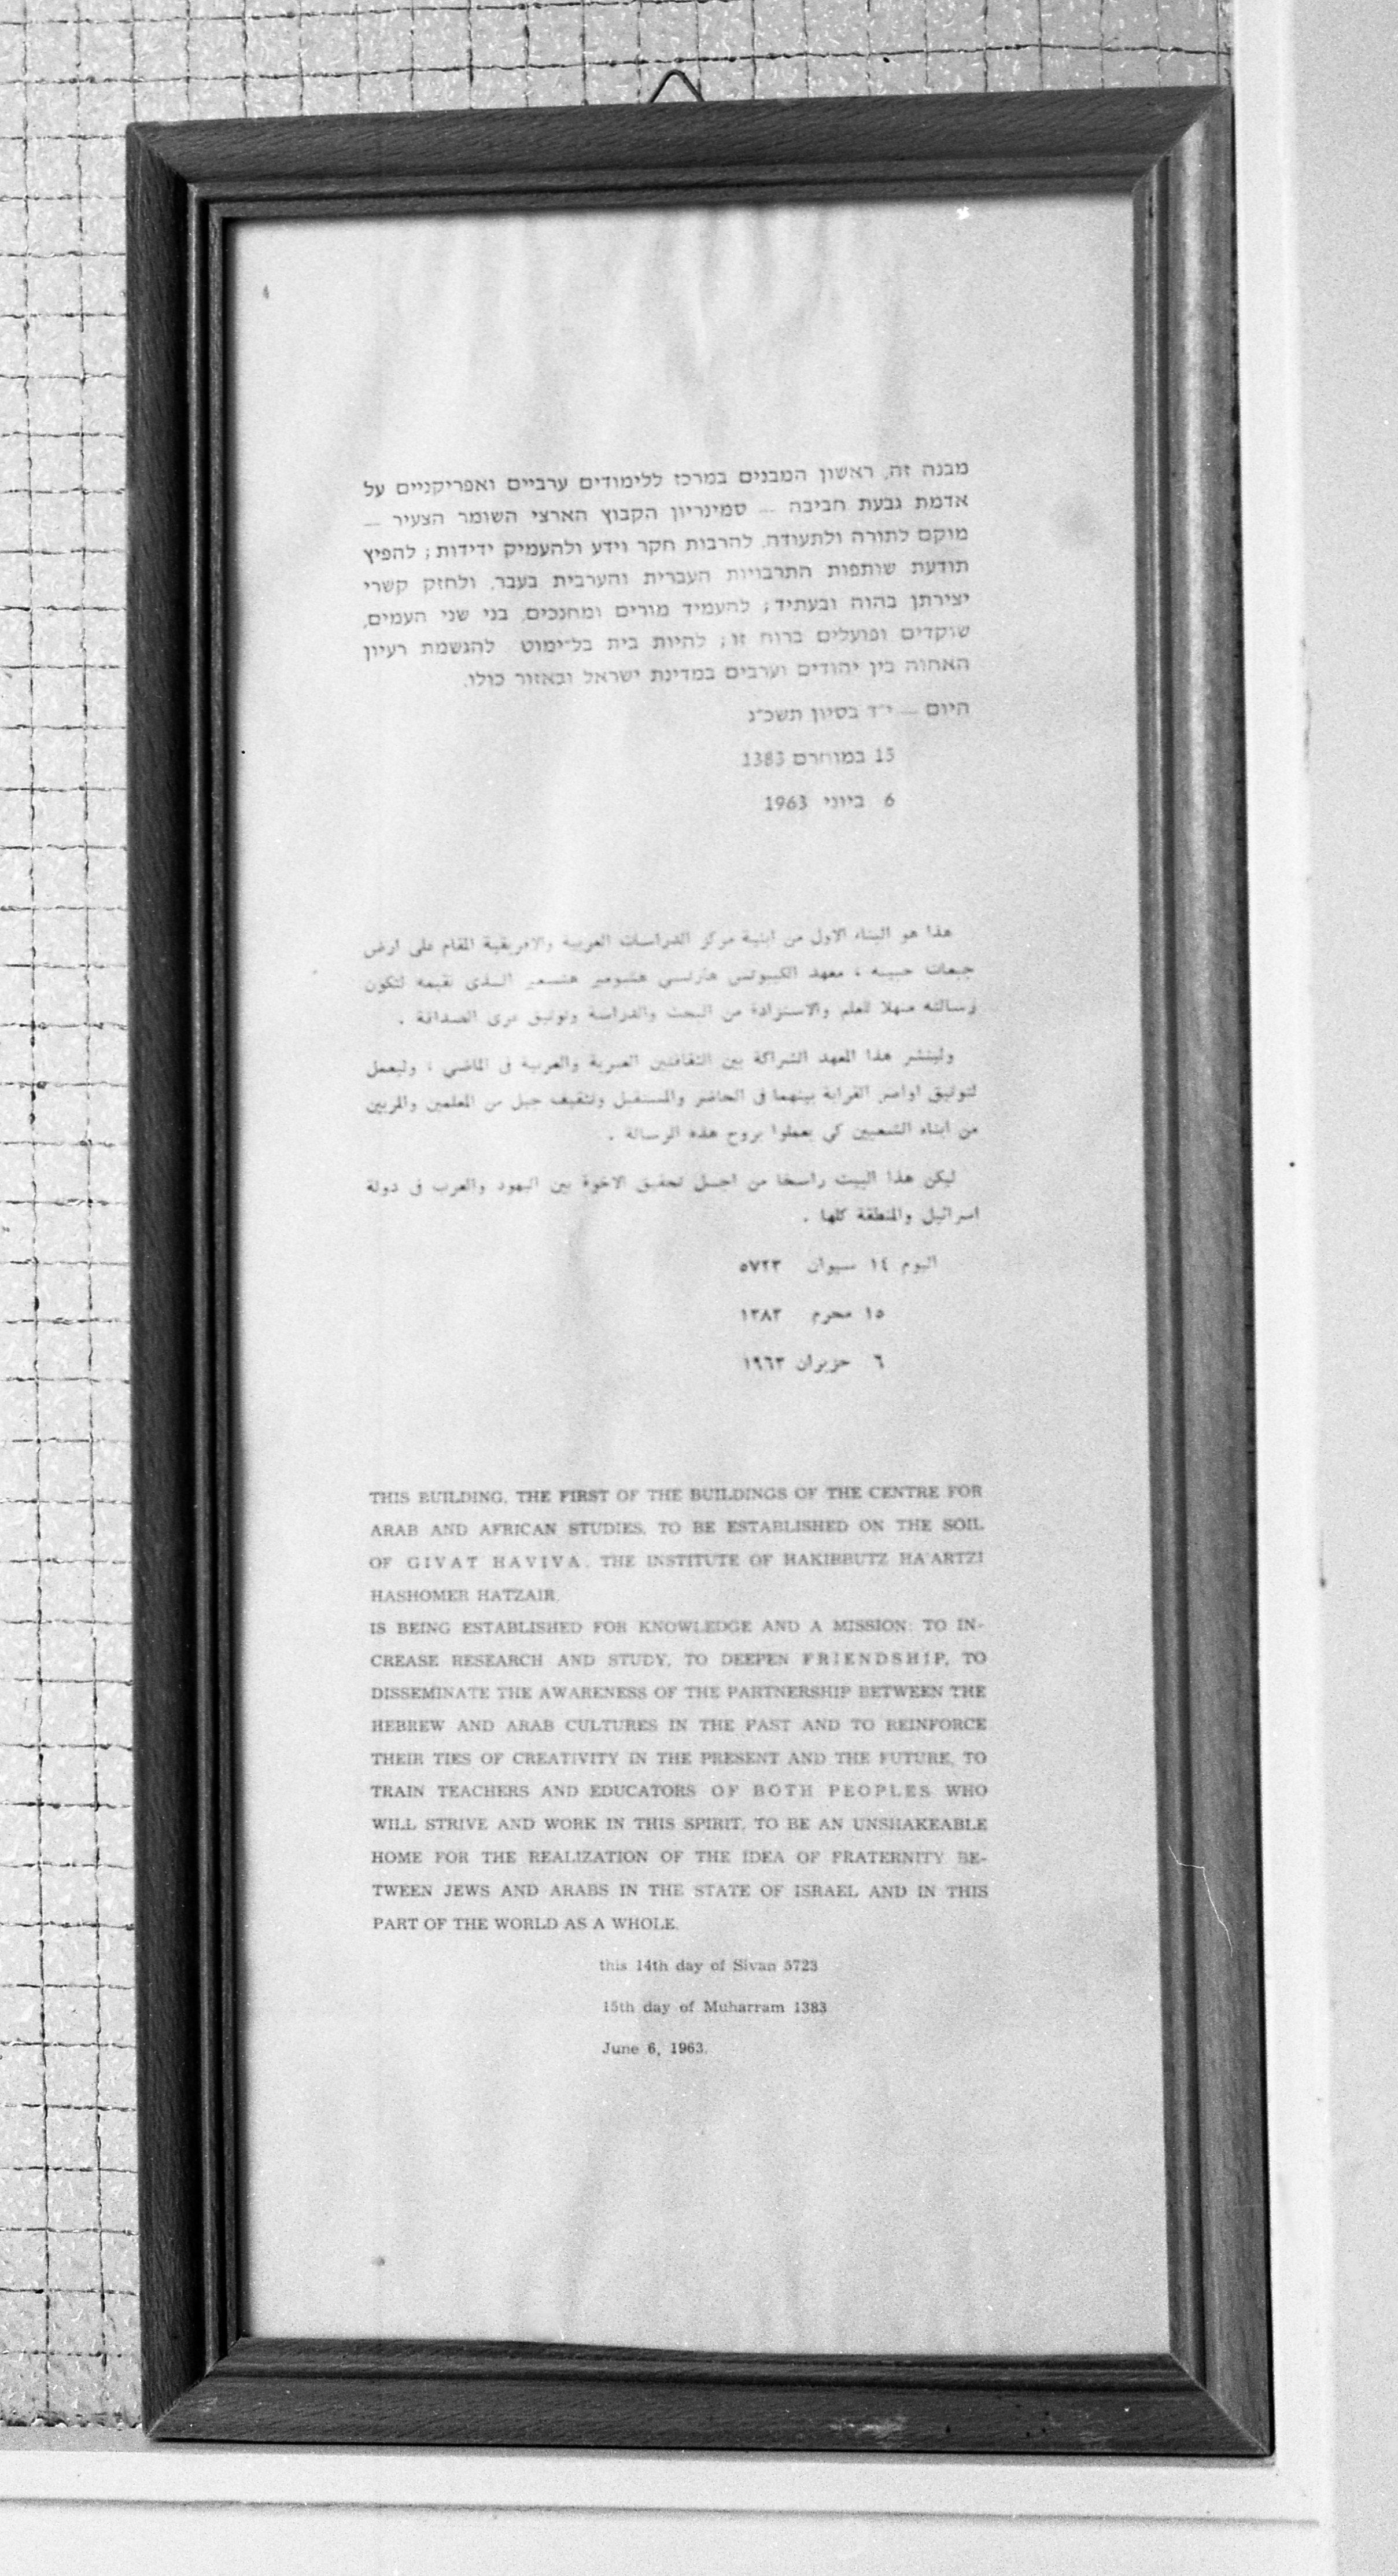 מבנה זה, ראשון המבנים במרכז ללימודים ערביים ואפריקניים על
אדמת גבעת חביבה — סמינריון הקבוץ הארצי השומר הצעיר —
מוקם לתורה ולתעודה. להרבות חקר וידע ולהעמיק ידידות; להפיץ
תודעת שותפות התרבויות העברית והערבית בעבר, ולחזק קשרי
יצירתן בהוה ובעתיד; להעמיד מורים ומחנכים, בני שני העמים,
שוקדים ופועלים ברוח זו; להיות בית בל־ימוט להגשמת רעיון
האחוה בין יהודים וערבים במדינת ישראל ובאזור כולו.
היום — י״ד בסיון תשכ״ג
15 במוחרם 1383
6 ביוני 1963
هذا هو البناء الاول من ابنية مركز الدراسات العربية والافريقية المقام على ارض
جبعات حبيبه ، معهد الكيبوتس هارتسي هشومير هتسعير الـذي نقيمه لتكون
رسالته منهلا للعلم والاستزادة من البحث والدراسة وتوثيق عرى الصداقة .
ولينشر هذا المعهد الشراكة بين الثقافتين العبرية والعربية في الماضي ، وليعمل
لتوثيق اواصر القرابة بينهما في الحاضر والمستقبل وتثقيف جيل من المعلمين والمربين
من ابناء الشعبين كي يعملوا بروح هذه الرسالة .
ليكن هذا البيت راسخا من اجـل تحقيق الاخوة بين اليهود والعرب في دولة
اسرائيل والمنطقة كلها .
اليوم ١٤ سيوان ٥٧٢٣
١٥ محرم ١٣٨٣
٦ حزيران ١٩٦٣
THIS BUILDING, THE FIRST OF THE BUILDINGS OF THE CENTRE FOR
ARAB AND AFRICAN STUDIES, TO BE ESTABLISHED ON THE SOIL
OF GIVAT HAVIVA, THE INSTITUTE OF HAKIBBUTZ HA'ARTZI
HASHOMER HATZAIR,
IS BEING ESTABLISHED FOR KNOWLEDGE AND A MISSION: TO IN-
CREASE RESEARCH AND STUDY, TO DEEPEN FRIENDSHIP, TO
DISSEMINATE THE AWARENESS OF THE PARTNERSHIP BETWEEN THE
HEBREW AND ARAB CULTURES IN THE PAST AND TO REINFORCE
THEIR TIES OF CREATIVITY IN THE PRESENT AND THE FUTURE, TO
TRAIN TEACHERS AND EDUCATORS OF BOTH PEOPLES WHO
WILL STRIVE AND WORK IN THIS SPIRIT, TO BE AN UNSHAKEABLE
HOME FOR THE REALIZATION OF THE IDEA OF FRATERNITY BE-
TWEEN JEWS AND ARABS IN THE STATE OF ISRAEL AND IN THIS
PART OF THE WORLD AS A WHOLE.
this 14th day of Sivan 5723
15th day of Muharram 1383
June 6, 1963.